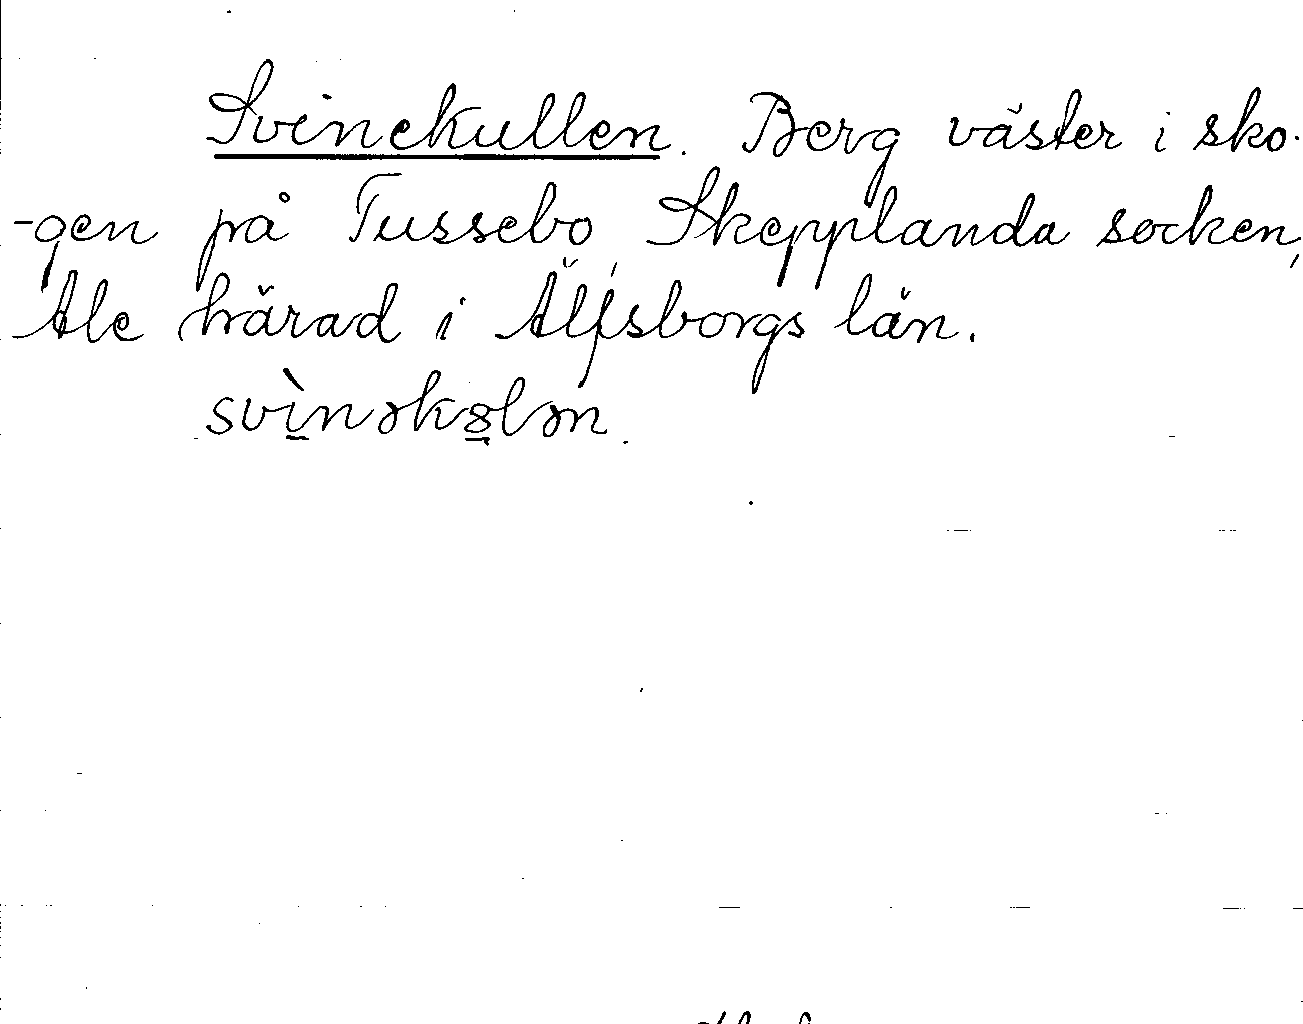 Svinekullen. Berg väster i sko-
-gen på Tussebo, Skepplanda socken,
Ale härad i Älfsborgs län.